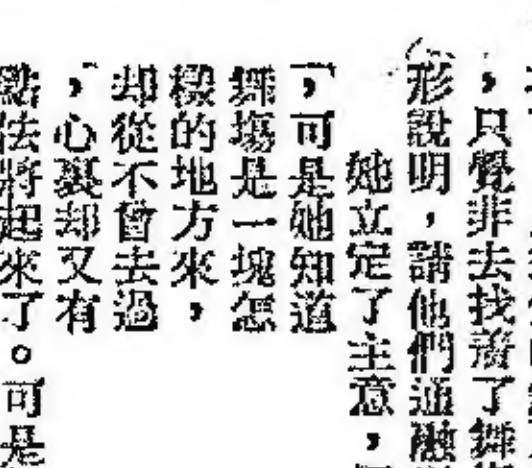 ，只覺非去找着了舞
形說明，請他們通融
她立定了主意，
，可是她知道
舞塲是一塊怎
樣的地方來，
却從不曾去過
，心裏却又有
點怯將起來了。可是